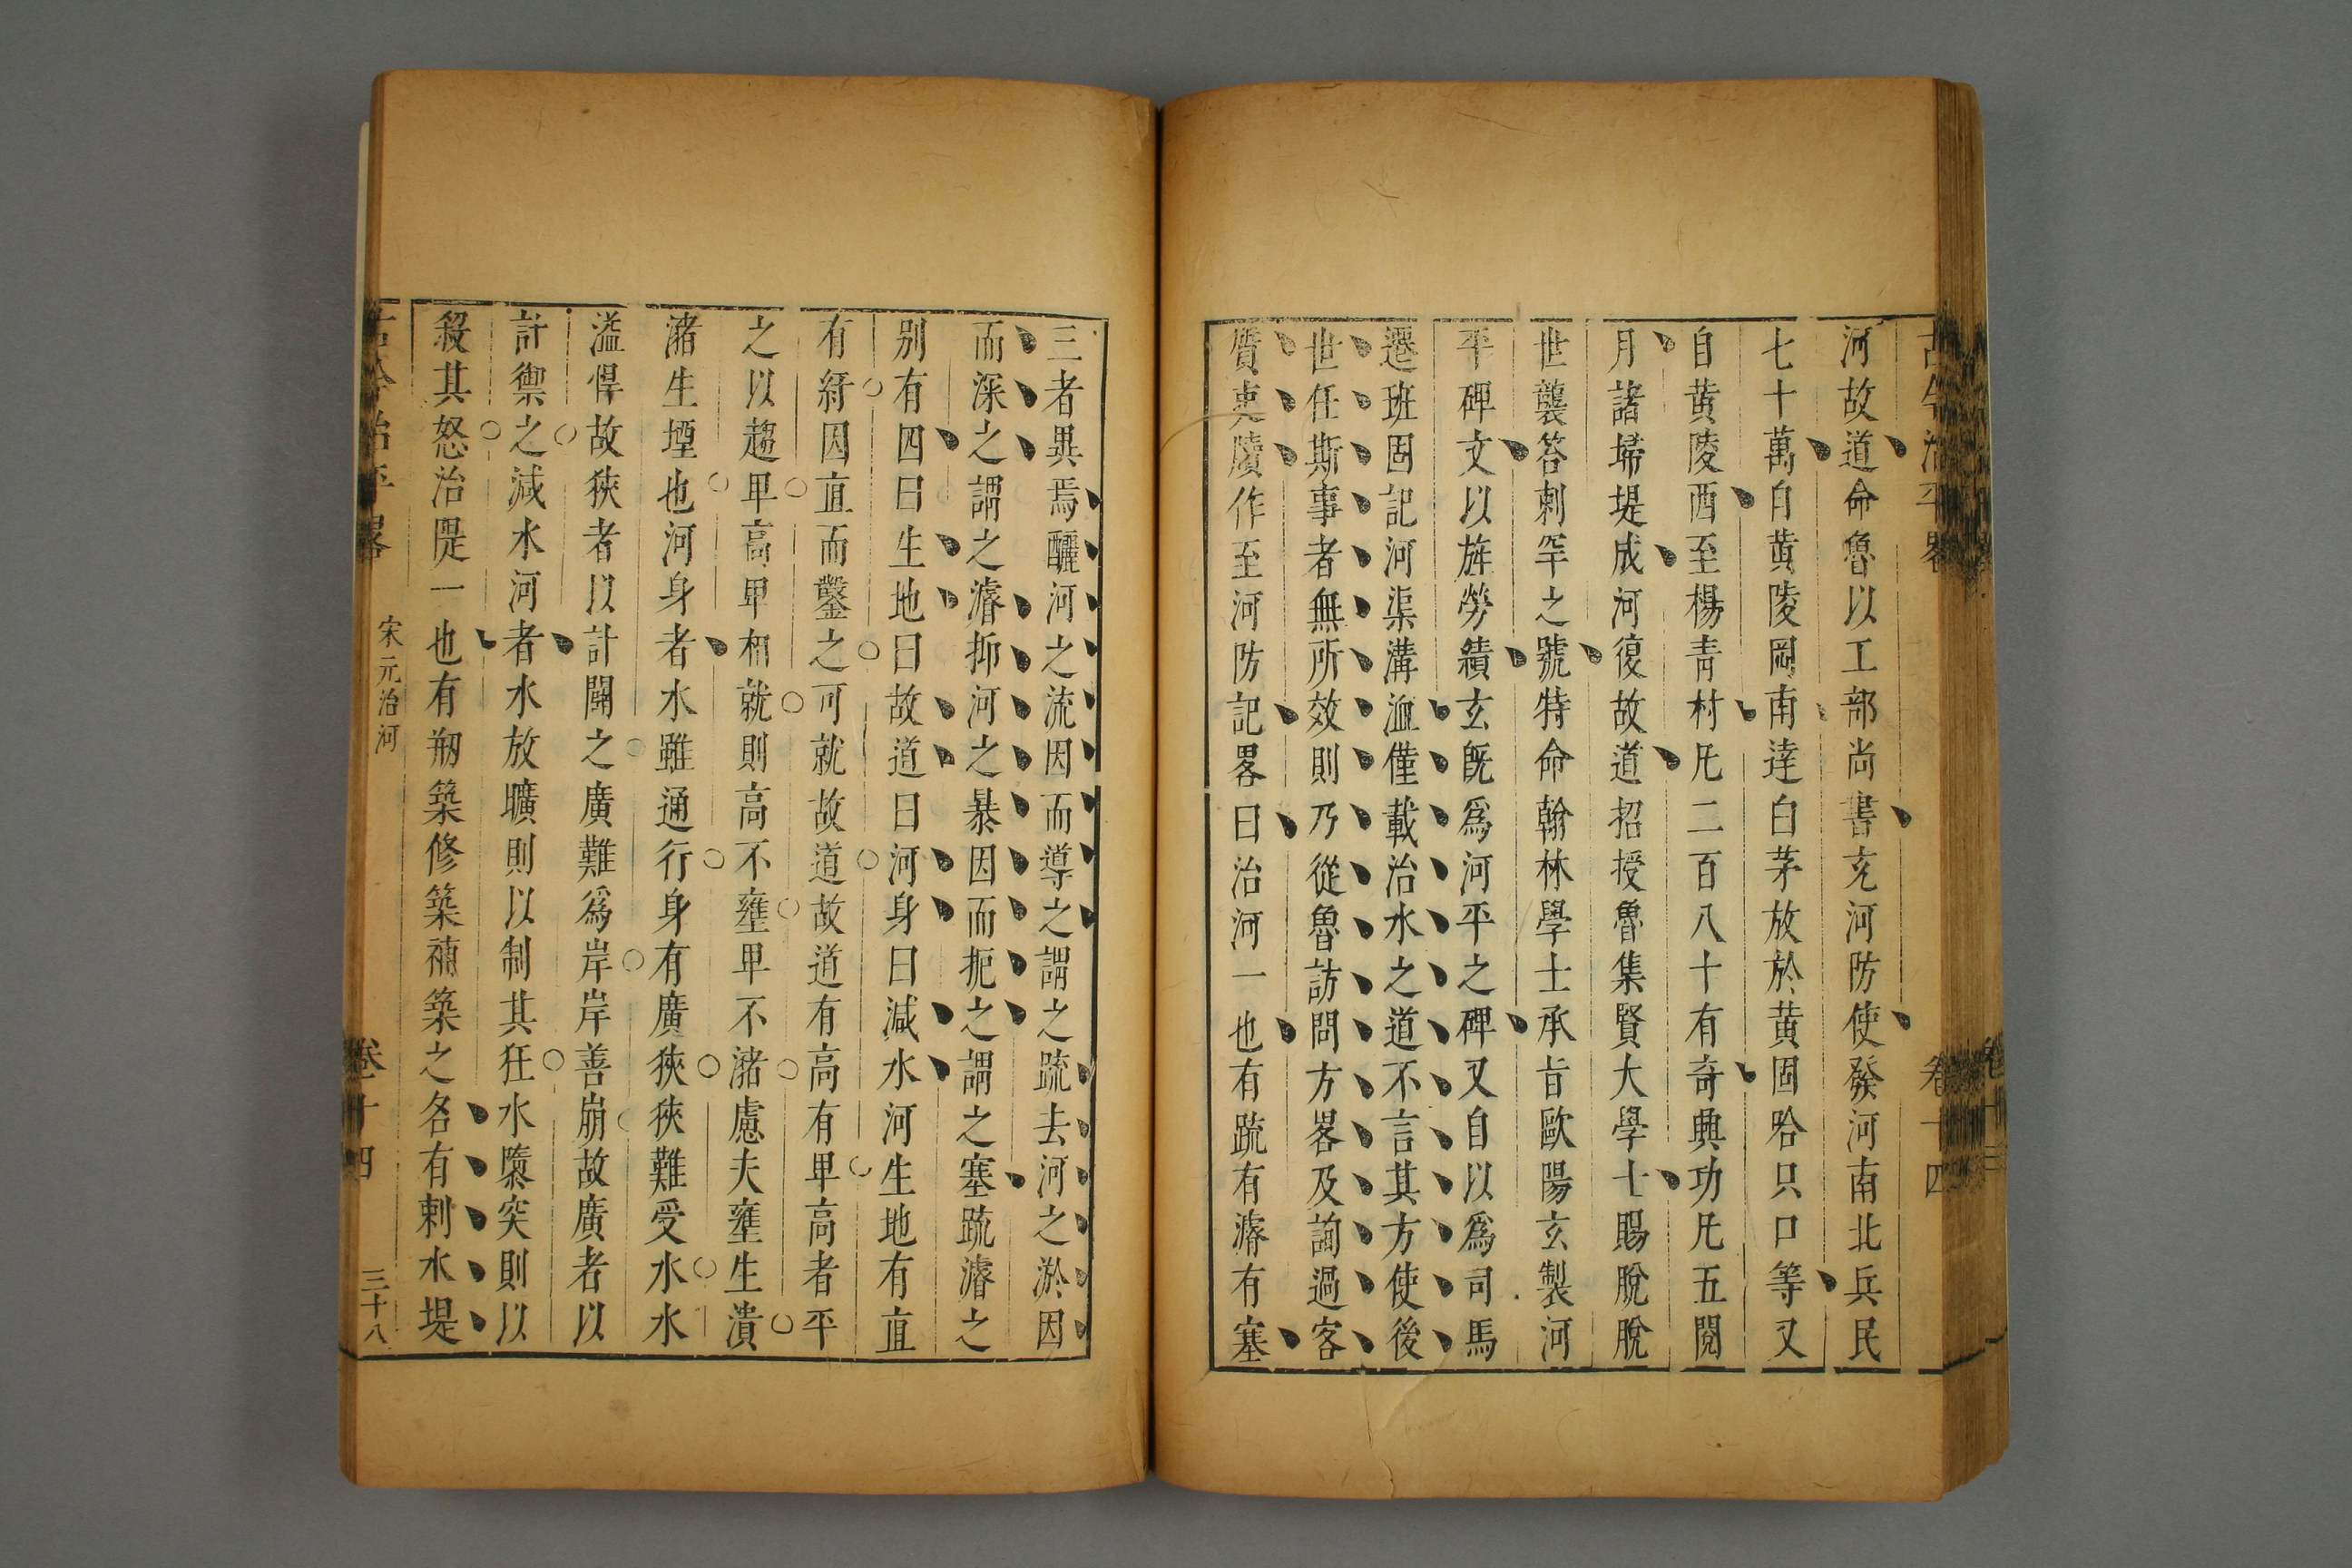 古今治平畧
卷十四
河故道命魯以工部尚書充河防使發河南北兵民
七十萬自黄陵岡南達白茅放於黄固哈只口等又
自黄陵西至楊青村凡二百八十有奇興功凡五閱
月諸埽堤成河復故道招授魯集賢大學士賜脫脫
世襲答剌罕之號特命翰林學士承旨歐陽玄製河
平碑文以旌勞績玄旣爲河平之碑又自以爲司馬
遷班固記河渠溝洫僅載治水之道不言其方使後
世任斯事者無所效則乃從魯訪問方畧及詢過客
質吏牘作至河防記畧曰治河一也有疏有濬有塞
三者異焉釃河之流因而導之謂之疏去河之淤因
而深之謂之濬抑河之暴因而扼之謂之塞疏濬之
别有四曰生地曰故道曰河身曰減水河生地有直
有紆因直而鑿之可就故道故道有高有卑高者平
之以趨卑高卑相就則高不壅卑不瀦慮夫壅生潰
瀦生堙也河身者水雖通行身有廣狹狹難受水水
溢悍故狹者以計闢之廣難爲岸岸善崩故廣者以
計禦之減水河者水放曠則以制其狂水隳突則以
殺其怒治隄一也有刱築修築補築之各有刺水堤
古今治平畧
宋元治河
卷十四
三十八